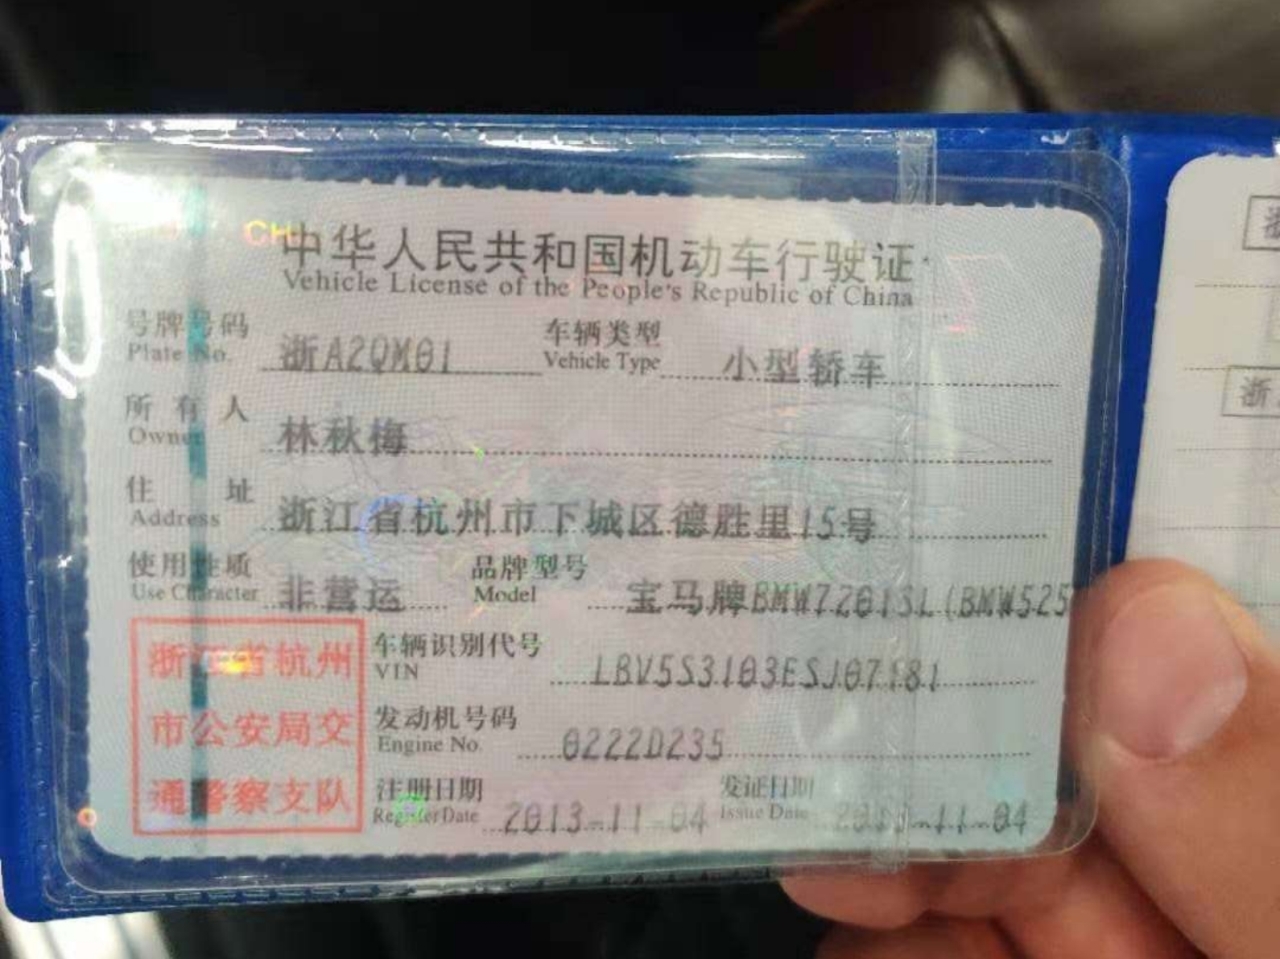 中华人民共和国机动车行驶证
Vehicle License of the People's Republic of China
号牌号码 浙A2QM01 车辆类型 小型轿车
Plate No. Vehicle Type
所有人 林秋梅
Owner
住址 浙江省杭州市下城区德胜里15号
Address
使用性质 非营运 品牌型号 宝马牌BMW7201SL(BMW525
Use Character Model
浙江省杭州
市公安局交
通警察支队
车辆识别代号 LBV5S3103ESJ07181
VIN
发动机号码 0222D235
Engine No.
注册日期 2013-11-04 发证日期 2013-11-04
Register Date Issue Date
浙